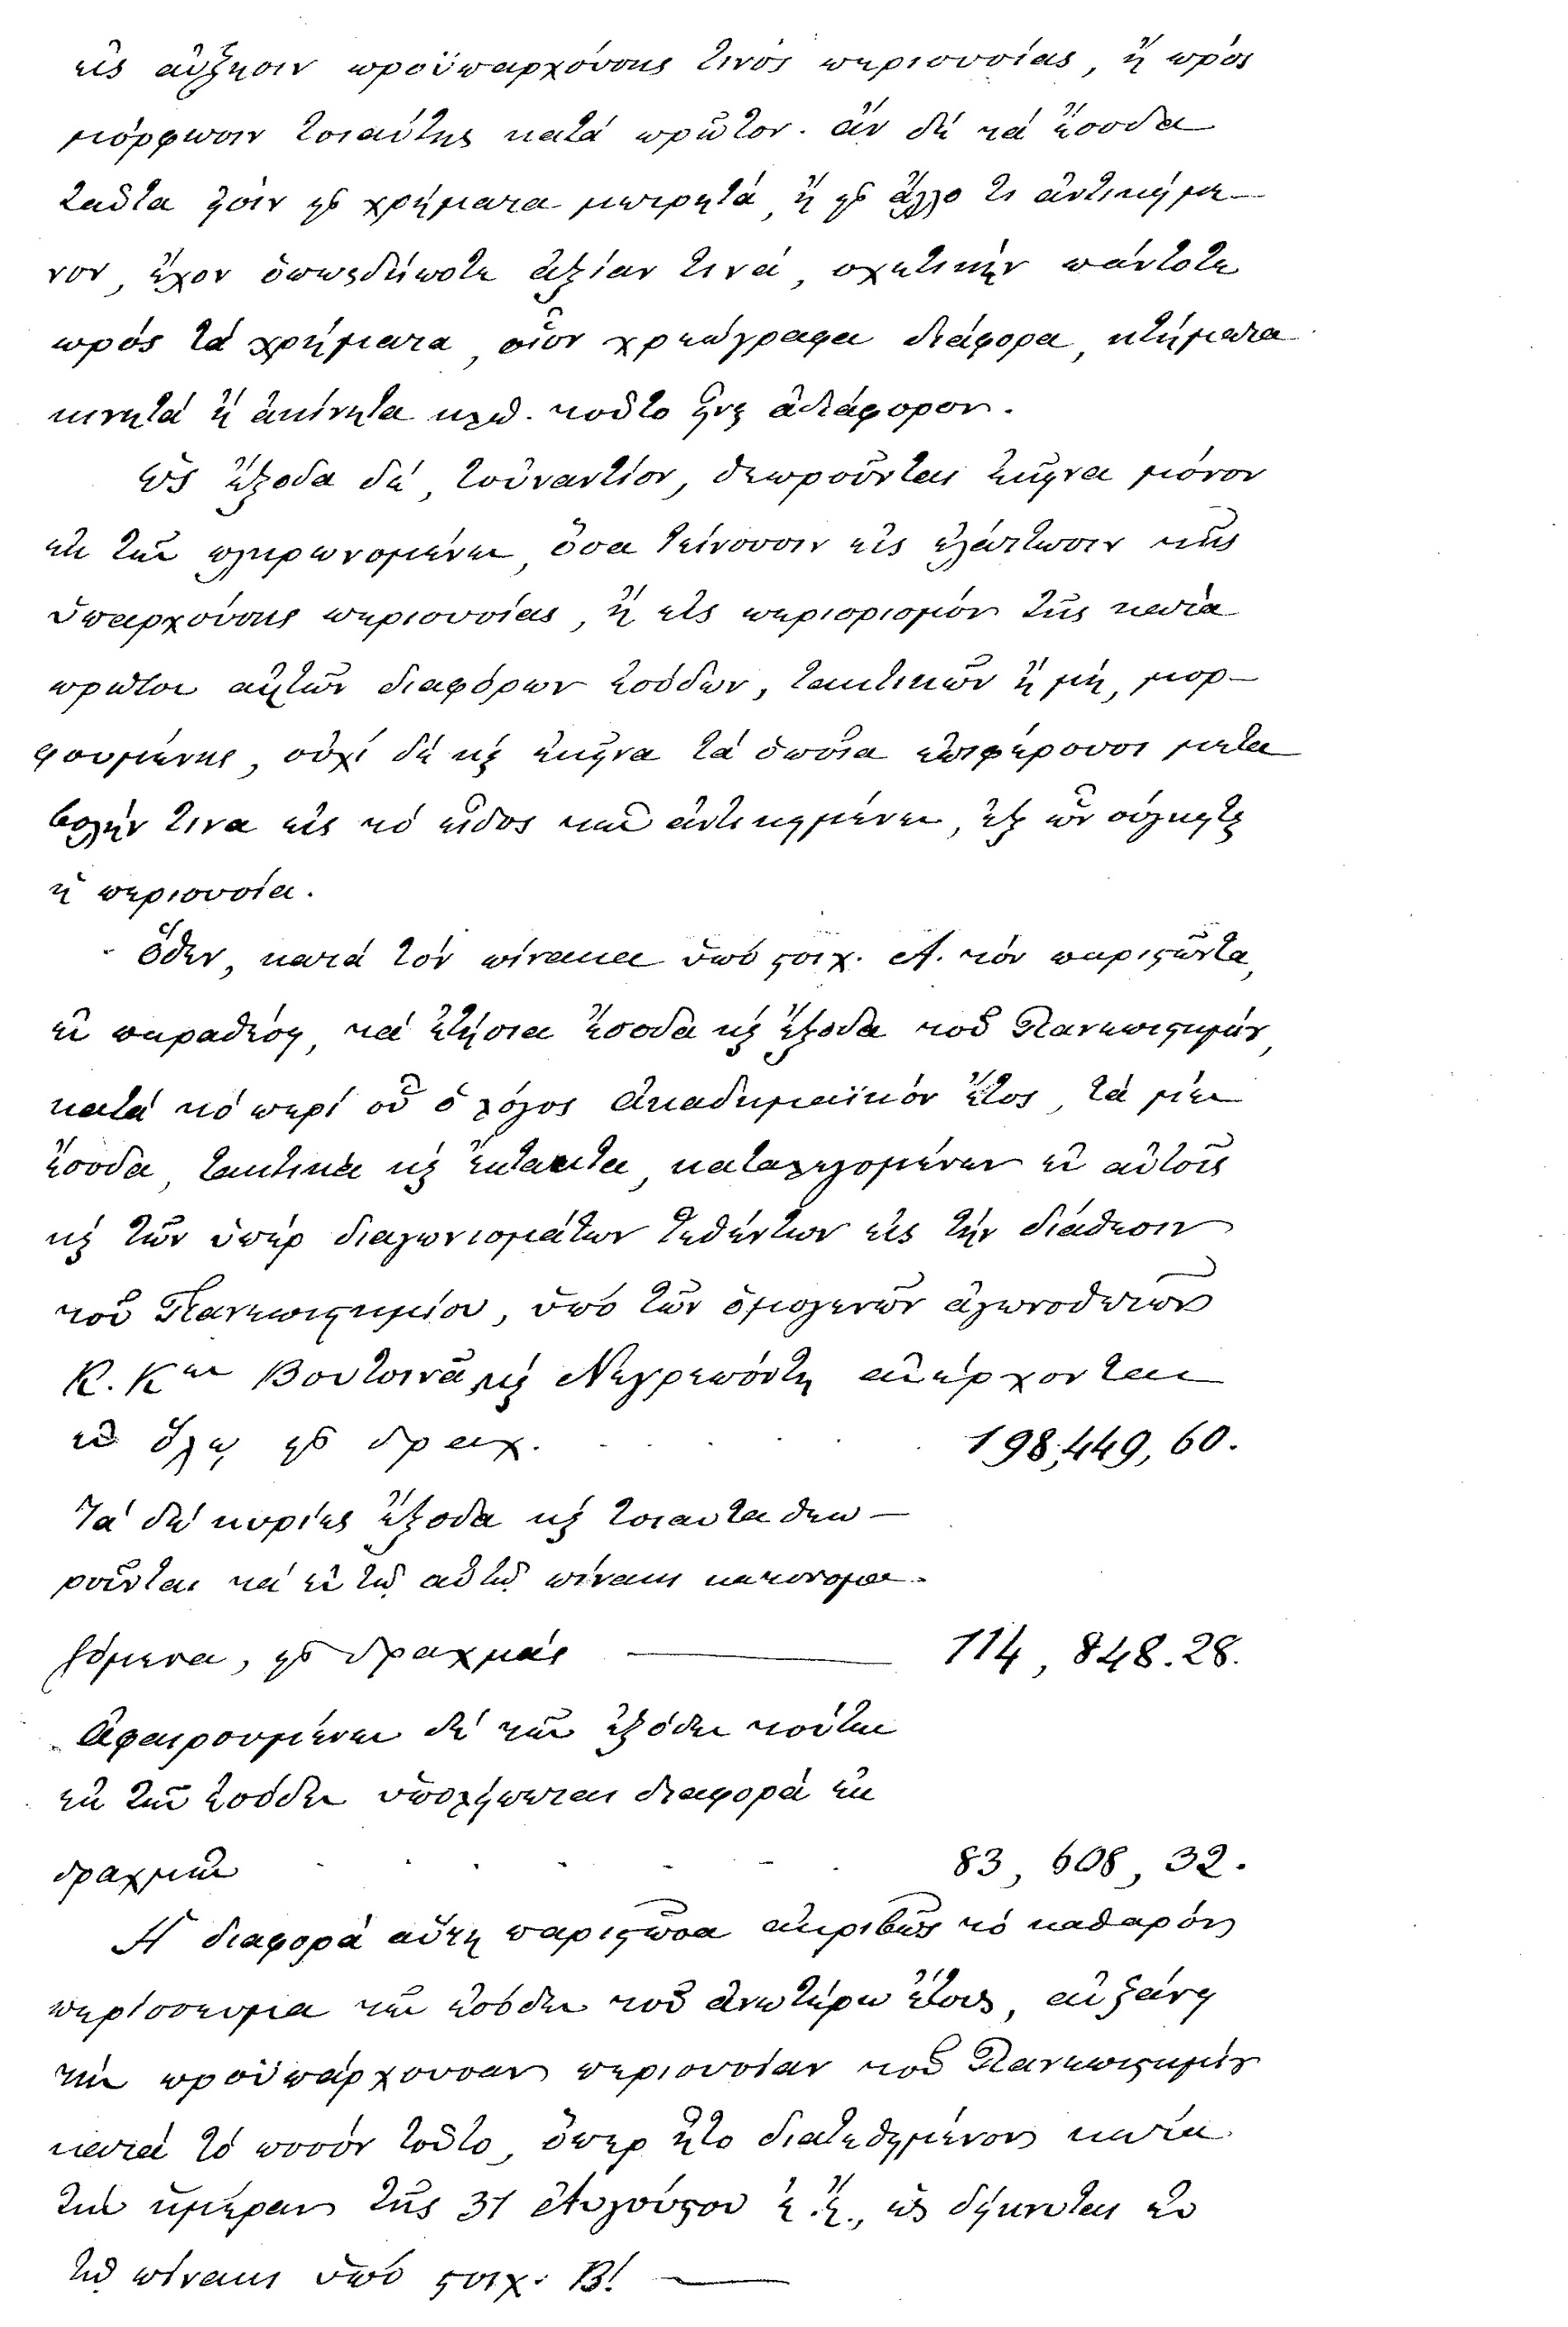 εἰς αὔξησιν προϋπαρχούσης τινός περιουσίας, ἤ πρός
μόρφωσιν τοιαύτης κατά πρῶτον. ἄν δέ τά ἔσοδα
ταῦτα ᾖσιν εἰς χρήματα μετρητά, ἤ εἰς ἄλλο τι ἀντικείμε-
νον, ἔχον ὁπωςδήποτε ἀξίαν τινά, σχετικήν πάντοτε
πρός τά χρήματα, οἷον χρεώγραφα διάφορα, κτήματα
κινητά ἤ ἀκίνητα κλπ. τοῦτο εἶνε ἀδιάφορον.
Ὡς ἔξοδα δέ, τοὐναντίον, θεωροῦνται ἐκεῖνα μόνον
ἐκ τῶν πληρωνομένων, ὅσα τείνουσιν εἰς ἐλάττωσιν τῆς
ὑπαρχούσης περιουσίας, ἤ εἰς περιορισμόν τῆς κατά
πρῶτον ἐκ τῶν διαφόρων ἐσόδων, τακτικῶν ἤ μή, μορ-
φουμένης, οὐχί δέ καί ἐκεῖνα τά ὁποῖα ἐπιφέρουσι μετα
βολήν τινα εἰς τό εἶδος τῶν ἀντικειμένων, ἐξ ὧν σύγκειται
ἡ περιουσία.
Ὅθεν, κατά τόν πίνακα ὑπό στοιχ. Α. τόν παριστῶντα,
ἐν παραθέσει, τά ἐτήσια ἔσοδα καί ἔξοδα τοῦ Πανεπιστημίου,
κατά τό περί οὗ ὁ λόγος Ἀκαδημαϊκόν ἔτος, τά μέν
ἔσοδα, τακτικά καί ἔκτακτα, καταλεγομένων ἐν αὐτοῖς
καί τῶν ὑπέρ διαγωνισμάτων τεθέντων εἰς τήν διάθεσιν
τοῦ Πανεπιστημίου, ὑπό τῶν ὁμογενῶν ἀγωνοθετῶν
Κ. Κων Βουτσινᾶ καί Νεγρεπόντη ἀνέρχονται
ἐν ὅλῳ εἰς δραχ. . . . . . 198,449,60.
Τά δέ κυρίως ἔξοδα καί τοιαῦτα θεω-
ροῦνται τά ἐν τῷ αὐτῷ πίνακι κατονομα-
ζόμενα, εἰς δραχμάς — 114,848.28.
Ἀφαιρουμένων δέ τῶν ἐξόδων τούτων
ἐκ τῶν ἐσόδων ὑπολείπεται διαφορά ἐκ
δραχμῶν . . . . . . . 83,608,32.
Ἡ διαφορά αὕτη παριστῶσα ἀκριβῶς τό καθαρόν
περίσσευμα τῶν ἐσόδων τοῦ ἀνωτέρω ἔτους, αὐξάνει
τήν προϋπάρχουσαν περιουσίαν τοῦ Πανεπιστημίου
κατά τό ποσόν τοῦτο, ὅπερ ἦτο διατεθειμένον κατά
τήν ἡμέραν τῆς 31 Αὐγούστου ἐ.ἔ., ὡς δείκνυται ἐν
τῷ πίνακι ὑπό στοιχ. Β! —